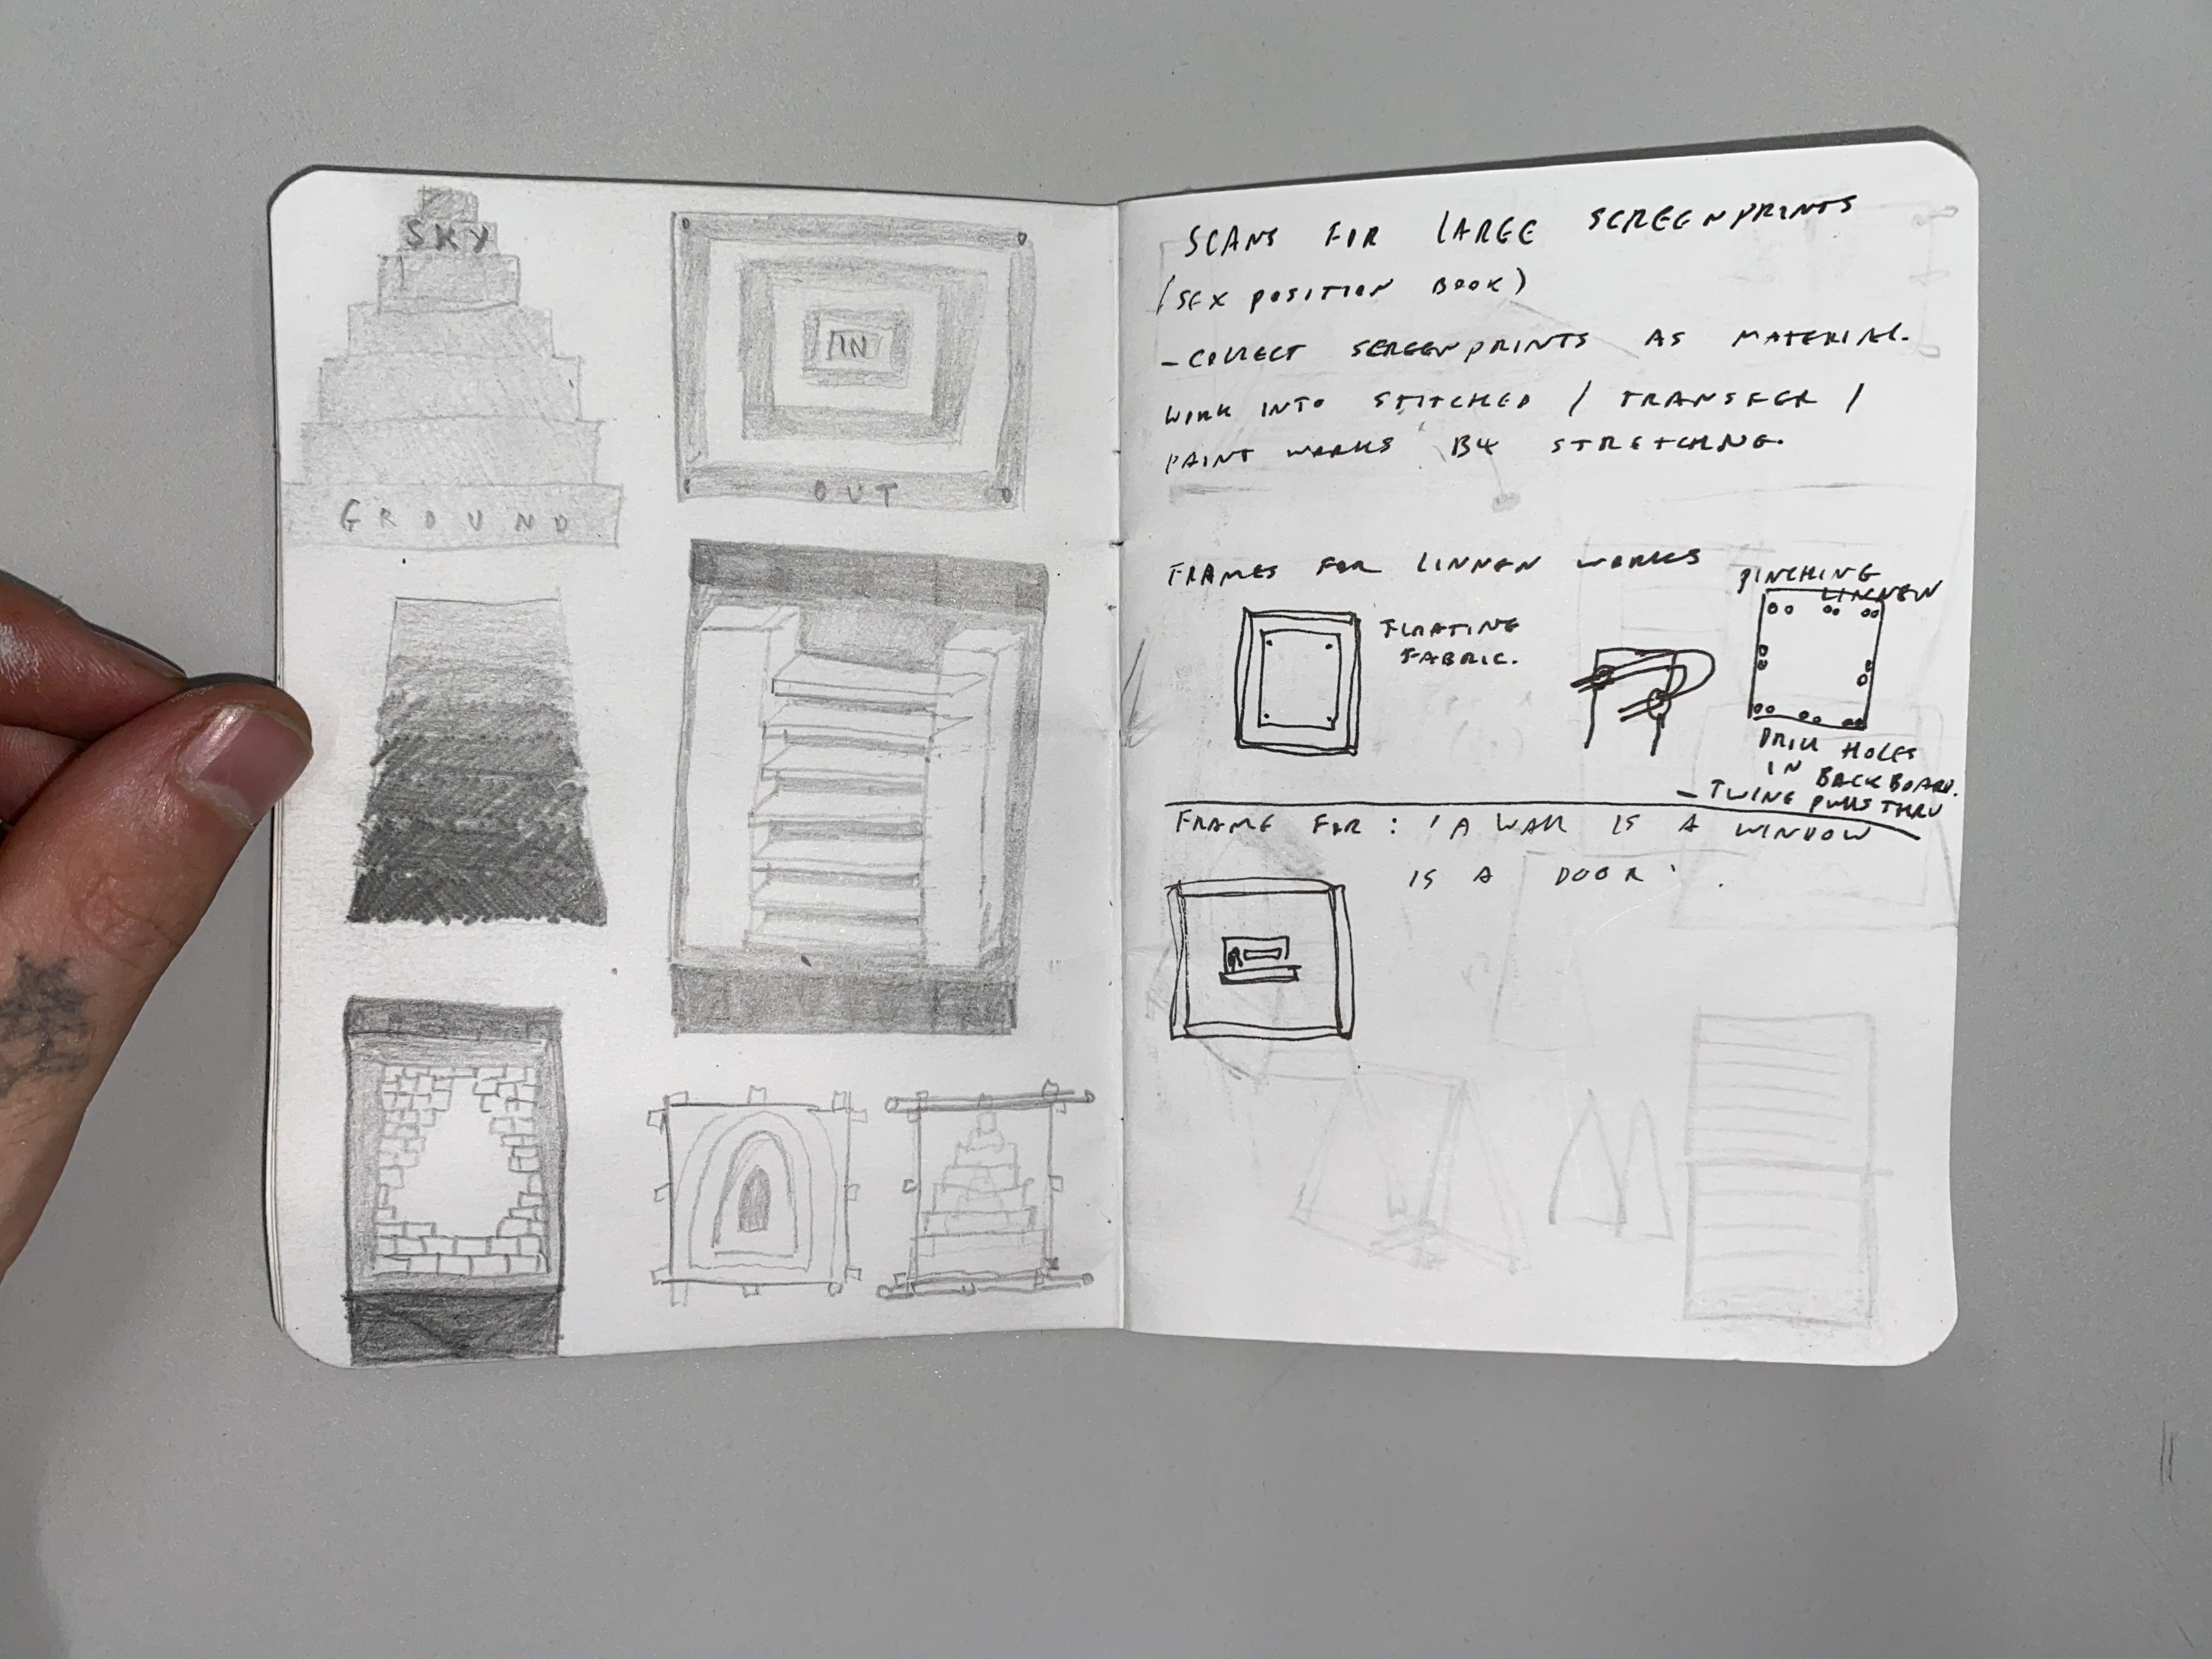 SKY
GROUND
IN
OUT
SCANS FOR LARGE SCREENPRINTS
(SEX POSITION BOOK)
- COLLECT SCREENPRINTS AS MATERIAL.
WORK INTO STITCHED / TRANSFER /
PAINT WORKS BY STRETCHNG.
FRAMES FOR LINNEN WORKS
FLOATING
FABRIC.
PINCHING
LINNEN
DRILL HOLES
IN BACKBOARD.
- TWINE PULLS THRU
FRAME FOR: 'A WALL IS A WINDOW
IS A DOOR'.